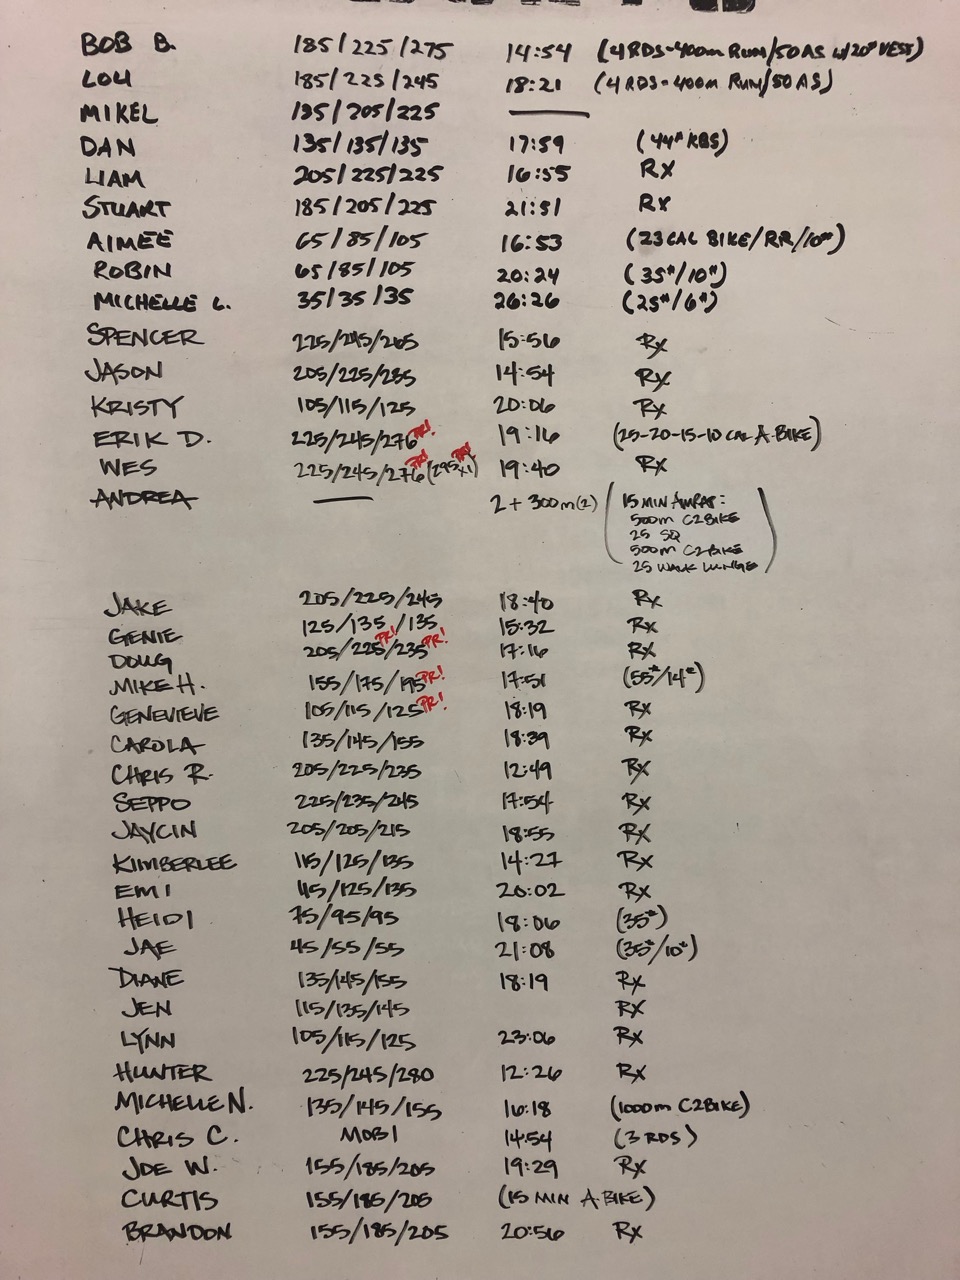 BOB B. 185/225/275 14:54 (4RDS-400m RUN/50AS W/20# VEST)
LOU 185/225/245 18:21 (4RDS-400m RUN/50AS)
MIKEL 185/205/225 —
DAN 135/135/135 17:59 (44# KBS)
LIAM 205/225/225 16:55 RX
STUART 185/205/225 21:51 RX
AIMEE 65/85/105 16:53 (23CAL BIKE/RR/10#)
ROBIN 65/85/105 20:24 (35#/10#)
MICHELLE L. 35/35/35 26:26 (25#/6#)
SPENCER 225/245/265 15:56 Rx
JASON 205/225/235 14:54 Rx
KRISTY 105/115/125 20:06 Rx
ERIK D. 225/245/276 PR! 19:16 (25-20-15-10 CAL A.BIKE)
WES 225/245/276 PR! (295x1) PR! 19:40 RX
ANDREA — 2 + 300m(2) (15 MIN AMRAP:
500m C2BIKE
25 SQ
500m C2BIKE
25 WALK LUNGE)
JAKE 205/225/245 18:40 Rx
GENIE 125/135/135 15:32 Rx
DOUG 205/225 PR!/235 PR! 17:16 RX
MIKE H. 155/175/195 PR! 17:51 (55#/14#)
GENEVIEVE 105/115/125 PR! 18:19 RX
CAROLA 135/145/155 18:39 Rx
CHRIS R. 205/225/235 12:49 RX
SEPPO 225/235/245 17:54 Rx
JAYCIN 205/205/215 18:55 RX
KIMBERLEE 115/125/135 14:27 RX
EMI 115/125/135 20:02 RX
HEIDI 75/95/95 18:06 (35#)
JAE 45/55/55 21:08 (35#/10#)
DIANE 135/145/155 18:19 Rx
JEN 115/135/145 RX
LYNN 105/115/125 23:06 Rx
HUNTER 225/245/280 12:26 RX
MICHELLE N. 135/145/155 16:18 (1000m C2BIKE)
CHRIS C. MOBI 14:54 (3 RDS)
JOE W. 155/185/205 19:29 RX
CURTIS 155/185/205 (15 MIN A.BIKE)
BRANDON 155/185/205 20:56 RX